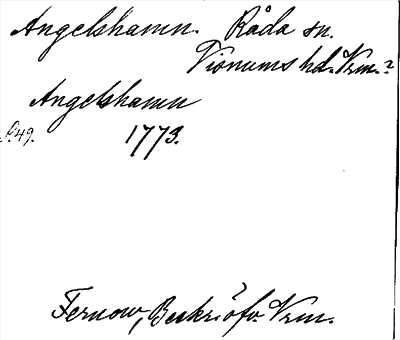 Angelshamn. Råda sn.
Visnums hd. Vrm.?
Angelshamn
S. 49. 1773.
Fernow, Beskr. öfv. Vrm.